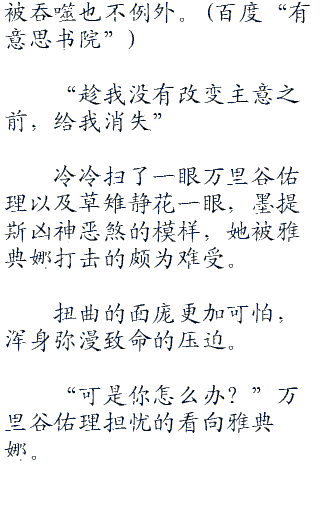 被吞噬也不例外。(百度“有
意思书院”)
“趁我没有改变主意之
前，给我消失”
冷冷扫了一眼万里谷佑
理以及草雉静花一眼，墨提
斯凶神恶煞的模样，她被雅
典娜打击的颇为难受。
扭曲的面庞更加可怕，
浑身弥漫致命的压迫。
“可是你怎么办？”万
里谷佑理担忧的看向雅典
娜。